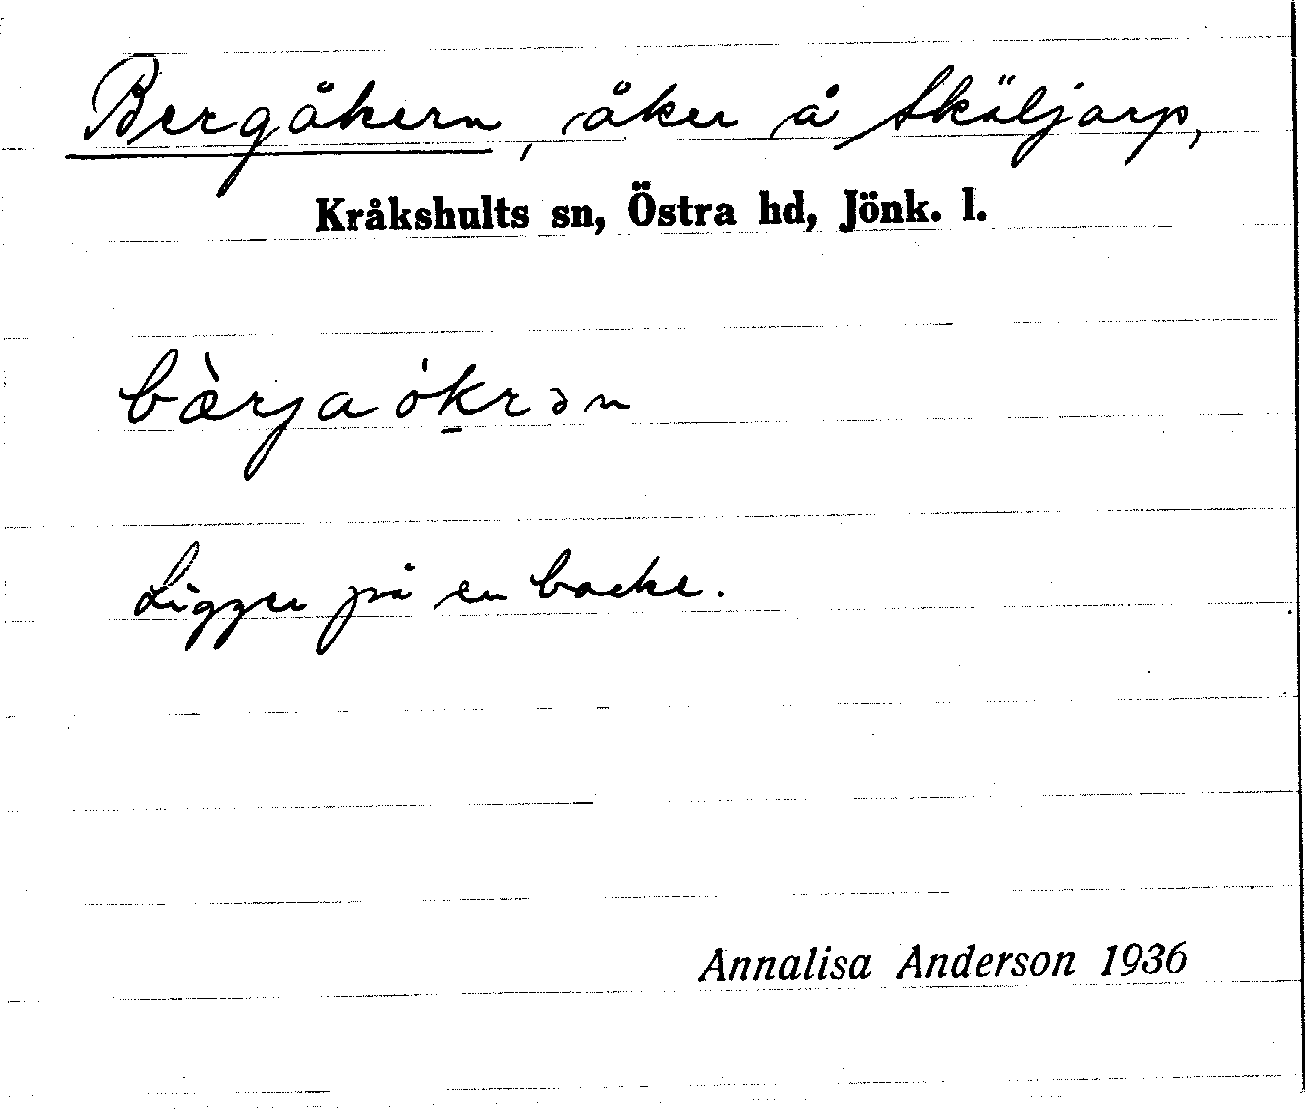 Bergåkern, åker å Skäljarp,
Kråkshults sn, Östra hd, Jönk. l.
bærja ókrən
Ligger på en backe.
Annalisa Anderson 1936